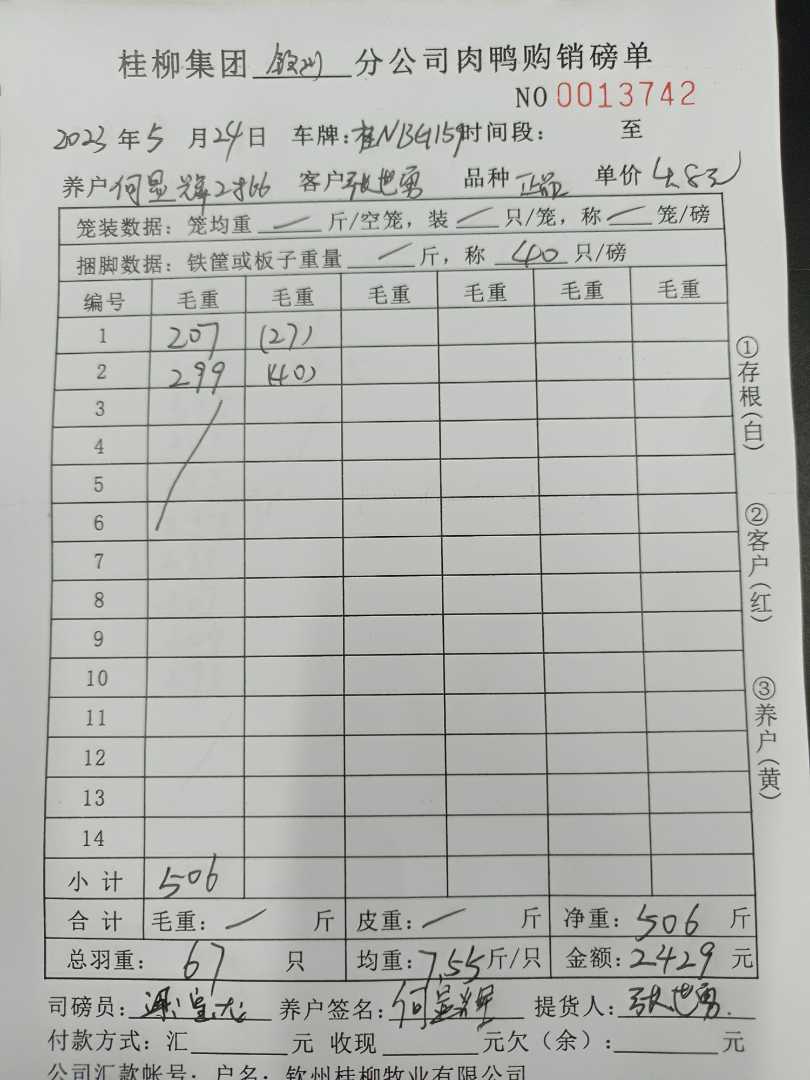 桂柳集团 钦州 分公司肉鸭购销磅单
NO 0013742
2023 年 5 月 24 日 车牌:桂NBG159 时间段: 至
养户 何显辉 客户 张世勇 品种 正品 单价 4.8元
笼装数据: 笼均重 一 斤/空笼, 装 一 只/笼, 称 一 笼/磅
捆脚数据: 铁筐或板子重量 一 斤, 称 40 只/磅
编号 毛重 毛重 毛重 毛重 毛重 毛重
1 207 (27)
2 299 (40)
3
4
5
6
7
8
9
10
11
12
13
14
小计 506
合计 毛重: 一 斤 皮重: 一 斤 净重: 506 斤
总羽重: 67 只 均重: 7.55 斤/只 金额: 2429 元
司磅员: 养户签名: 何显辉 提货人: 张世勇.
付款方式: 汇 元 收现 元欠(余): 元
公司汇款帐号: 户名: 钦州桂柳牧业有限公司
①存根(白)
②客户(红)
③养户(黄)